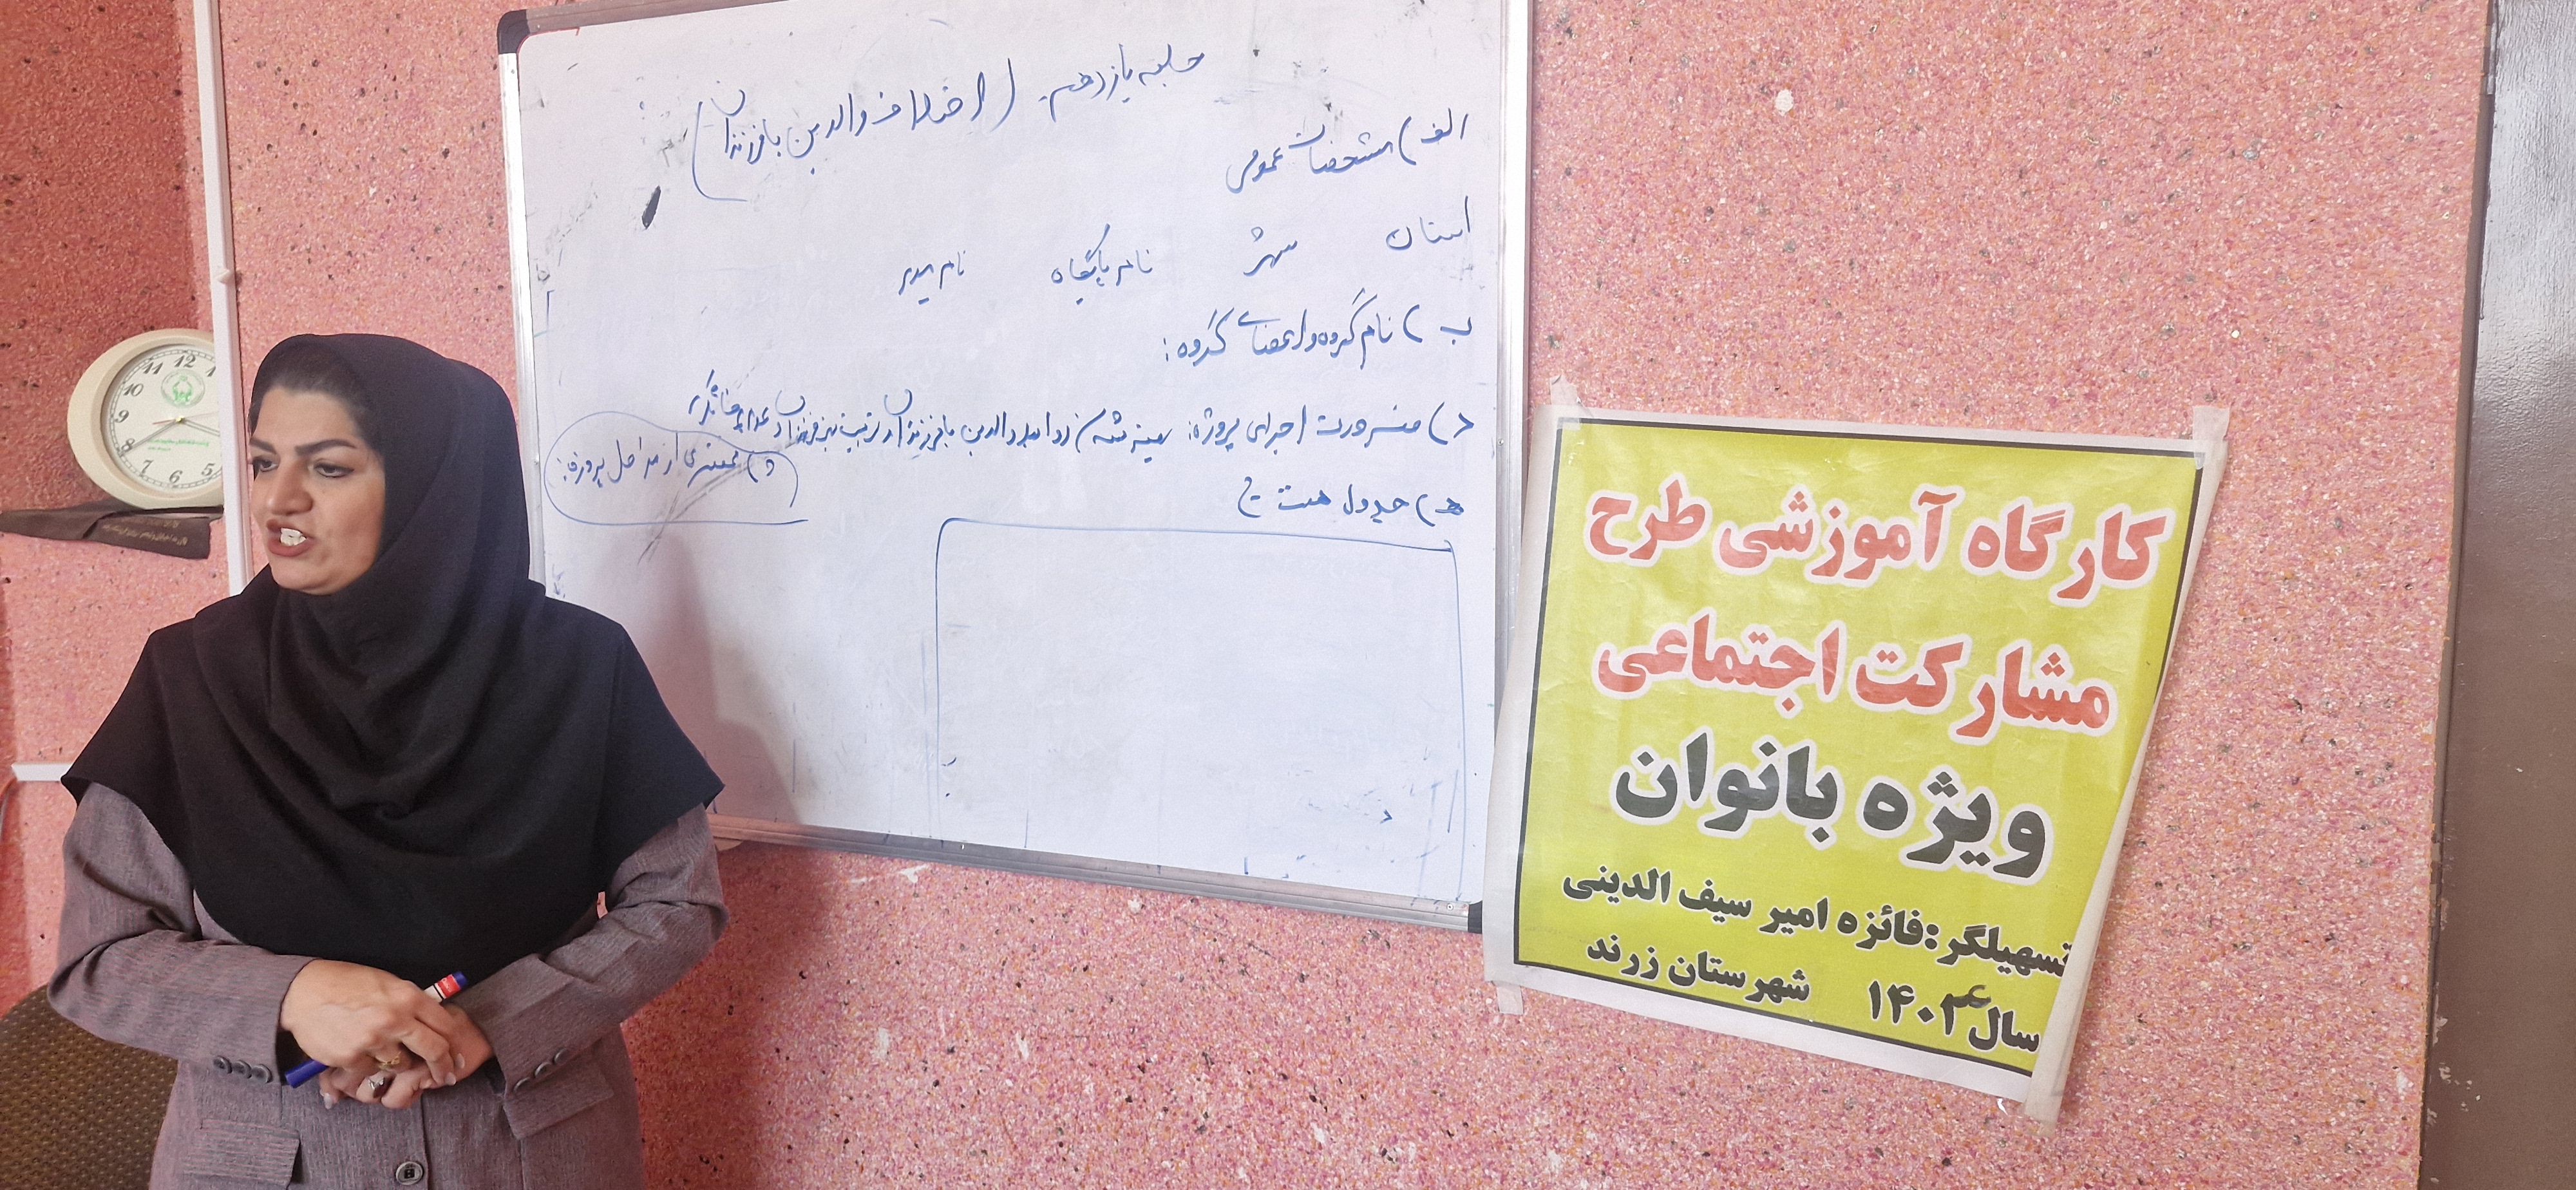 جلسه یازدهم (اختلاف والدین با فرزندان)
الف) مشخصات عمومی
استان شهر نام پایگاه نام مدیر
ب) نام گروه و اعضای گروه:
د) ضرورت اجرای پروژه: بهینه شدن روابط والدین با فرزندان تربیت بهتر فرزندان
و) مختصری از مراحل پروژه:
ه) جدول هشت خ
کارگاه آموزشی طرح
مشارکت اجتماعی
ویژه بانوان
تسهیلگر: فائزه امیر سیف الدینی
سال ۱۴۰۴ شهرستان زرند
12
11
10
9
8
7
6
5